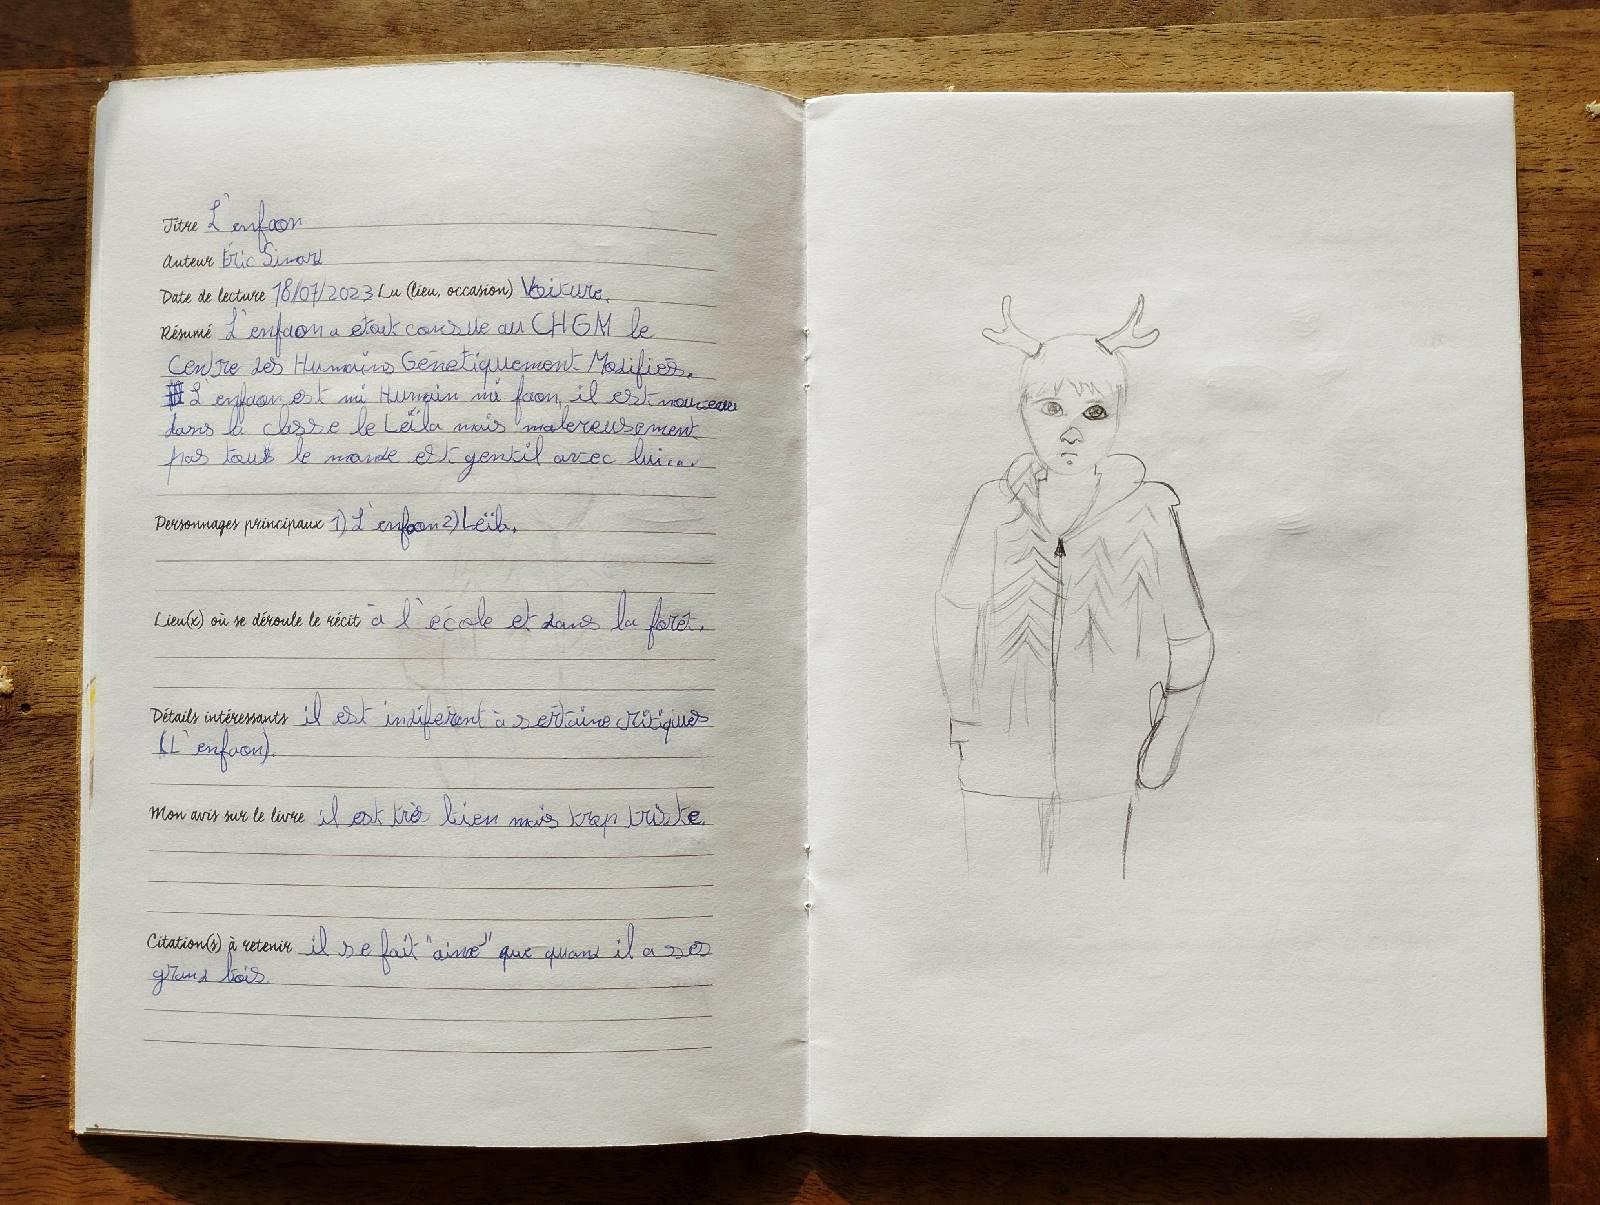 Titre L'enfaon
Auteur Éric Simard
Date de lecture 18/07/2023 Lu (lieu, occasion) Voiture.
Résumé L'enfaon a etait consue au CHGM le
Centre des Humains Génétiquement Modifiés.
L'enfaon est mi Humain mi faon, il est nouveau
dans la classe le Leïla mais malereusement
pas tout le monde est gentil avec lui...
Personnages principaux 1) L'enfaon 2) Leïla.
Lieu(x) où se déroule le récit à l'école et dans la forêt.
Détails intéressants il est indiferent à sertaine critiques
(L'enfaon).
Mon avis sur le livre il est très bien mais trop triste.
Citation(s) à retenir il se fait "aimé" que quand il a ses
grand bois.